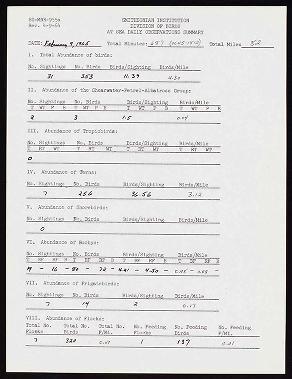 SMITHSONIAN INSTITUTION
DIVISION OF BIRDS
AT SEA DAILY OBSERVATIONS SUMMARY
DATE: February 9, 1965 Total Minutes: Total Miles 82
I. Total Abundance of birds:
No. Sightings No. Birds Birds/Sighting Birds/Mile
31 353 11.39
II. Abundance of the Shearwater-Petrel-Albatross Group:
No. Sightings No. Birds Birds/Sighting Birds/Mile
2 3 1.5
III. Abundance of Tropicbirds:
No. Sightings No. Birds Birds/Sighting Birds/Mile
0
IV. Abundance of Terns:
No. Sightings No. Birds Birds/Sighting Birds/Mile
7 256 36.56 3.12
V. Abundance of Shorebirds:
No. Sightings No. Birds Birds/Sighting Birds/Mile
0
VI. Abundance of Boobys:
No. Sightings No. Birds Birds/Sighting Birds/Mile
VII. Abundance of Frigatebirds:
No. Sightings No. Birds Birds/Sighting Birds/Mile
7 14 2 0.17
VIII. Abundance of Flocks:
Total No. Total No. Total No. No. Feeding No. Feeding No. Feeding
Flocks Birds F/Mi. Flocks Birds F/Mi.
7 1 137